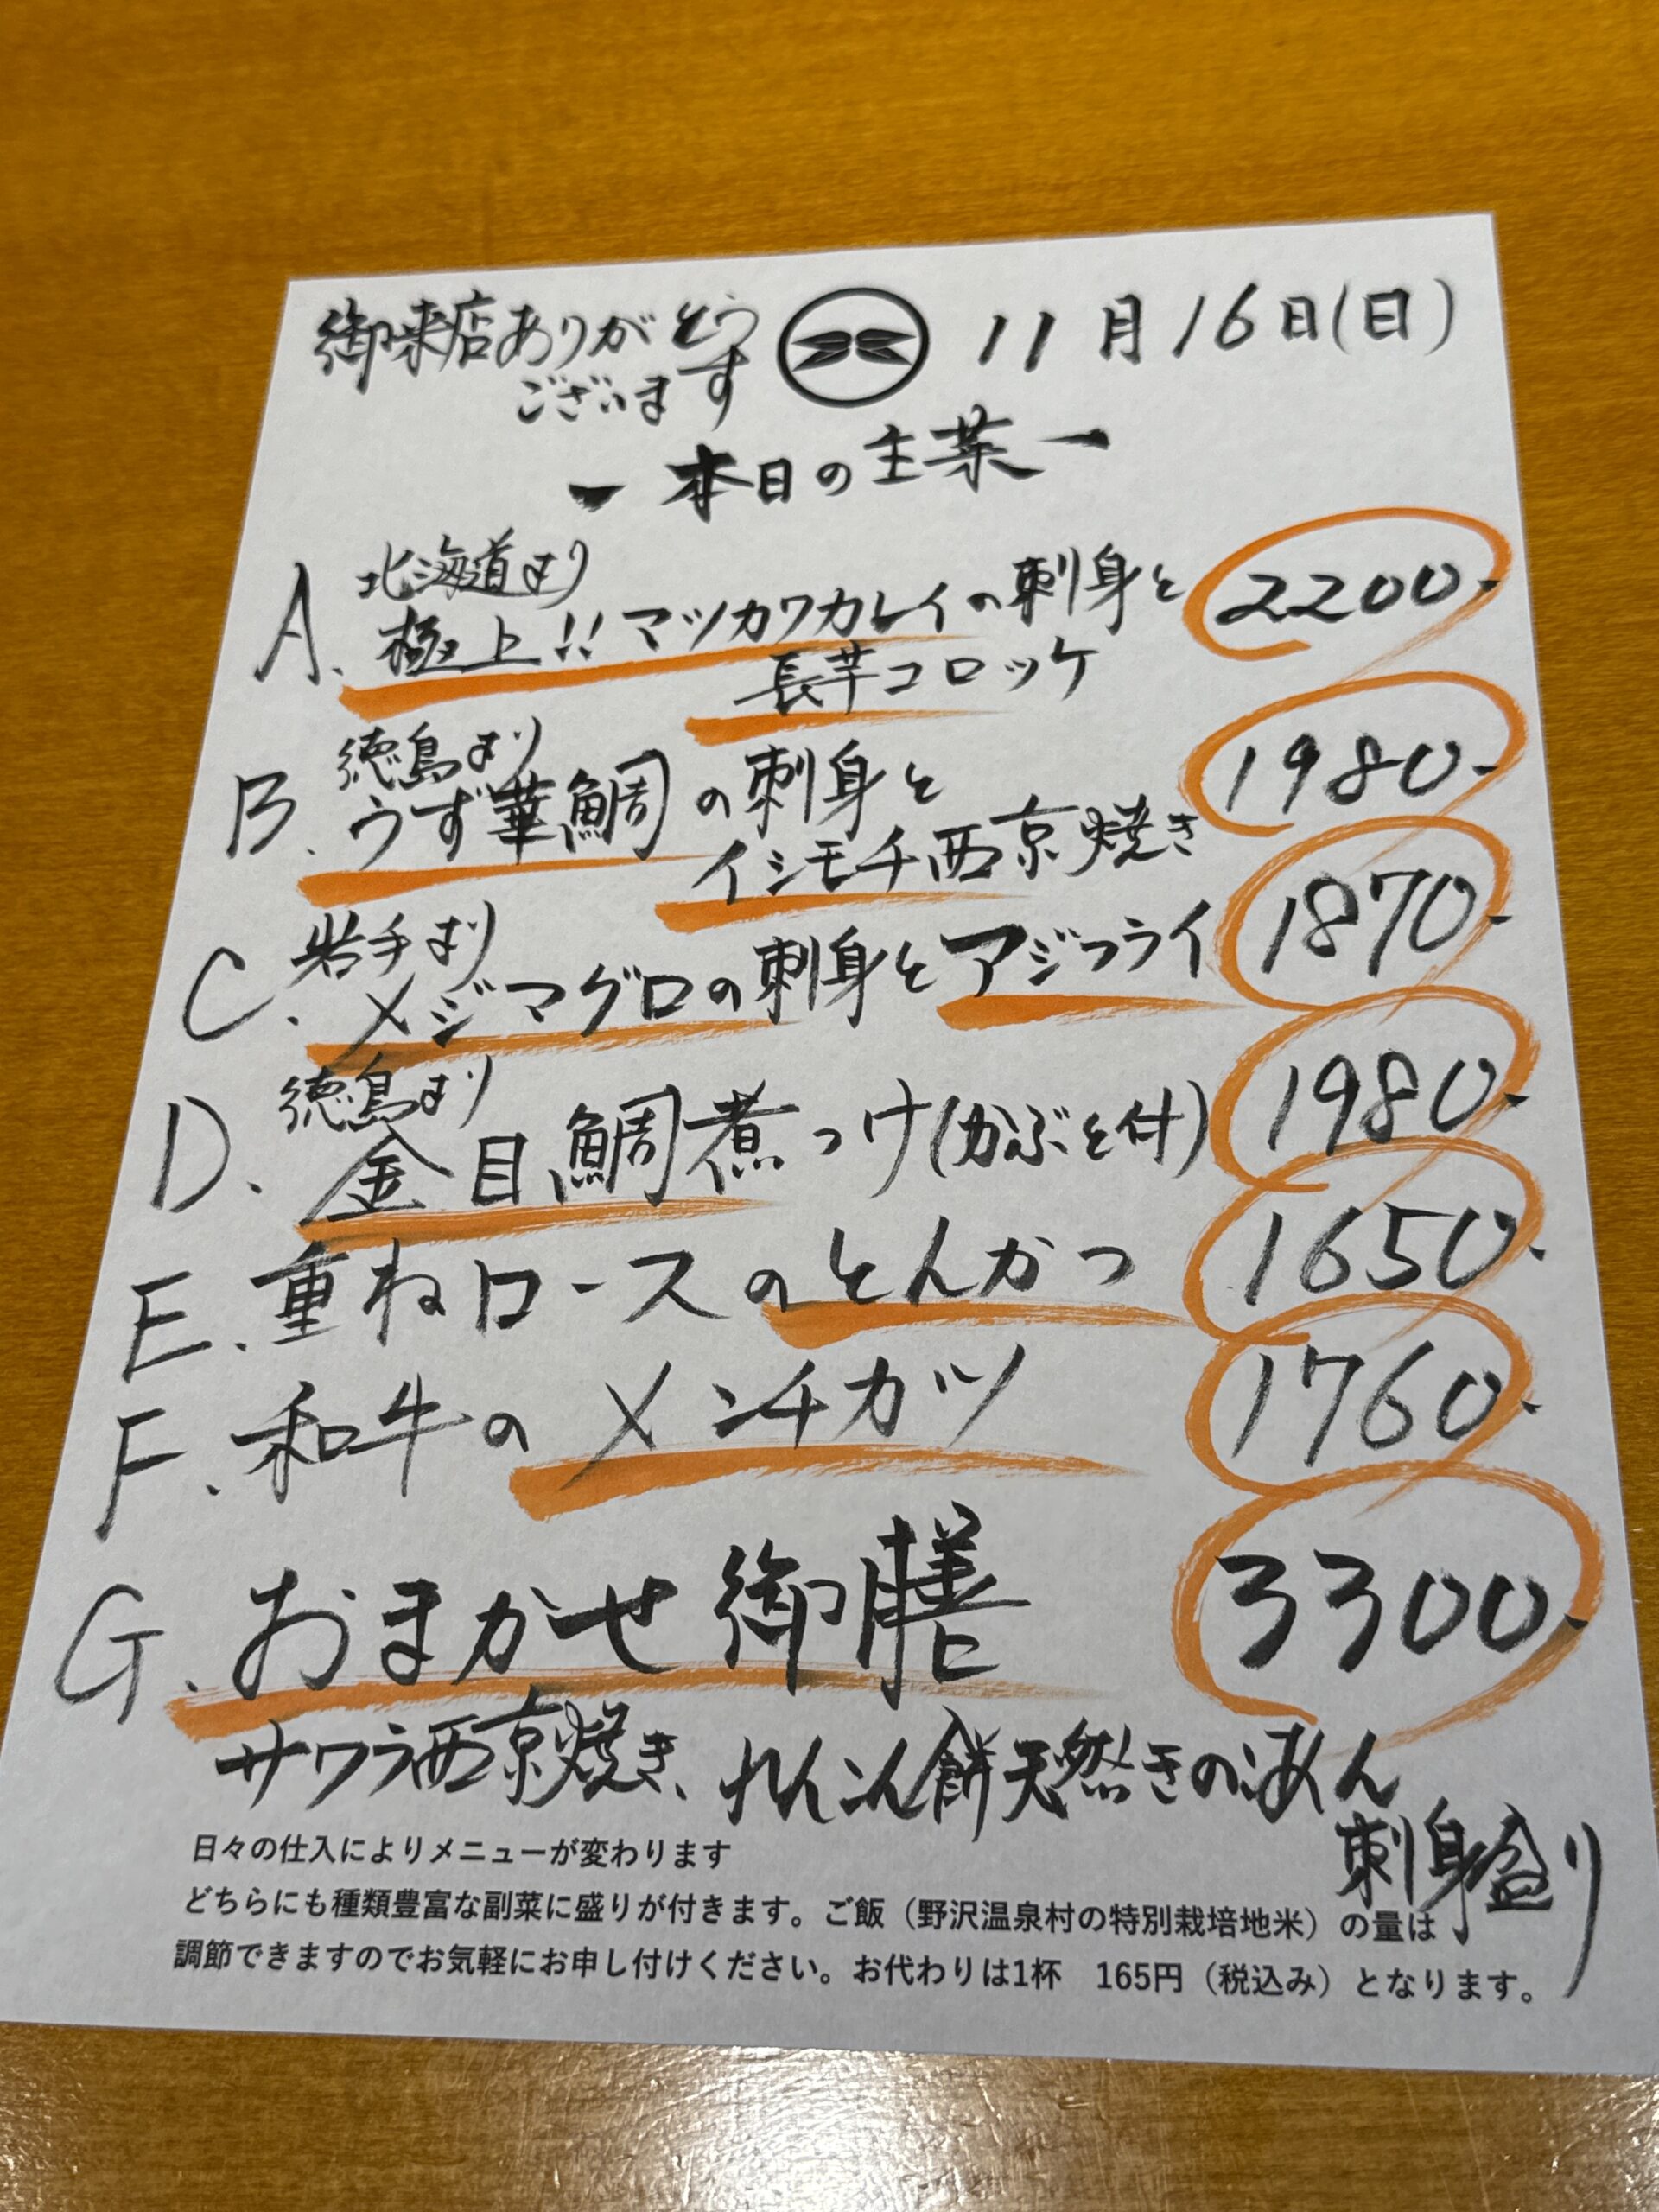 御来店ありがとう
ございます
11月16日(日)
ー本日の主菜ー
A. 北海道より
極上!!マツカワカレイの刺身と 2200.
長芋コロッケ
B. 徳島より
うず華鯛の刺身と 1980.
イシモチ西京焼き
C. 岩手より
メジマグロの刺身とアジフライ 1870.
D. 徳島より
金目鯛煮つけ(かぶと付) 1980.
E. 重ねロースのとんかつ 1650.
F. 和牛のメンチカツ 1760.
G. おまかせ御膳 3300.
サワラ西京焼き、れんこん餅天然きのこあん
刺身盛り
日々の仕入によりメニューが変わります
どちらにも種類豊富な副菜に盛りが付きます。ご飯（野沢温泉村の特別栽培地米）の量は
調節できますのでお気軽にお申し付けください。お代わりは1杯　165円（税込み）となります。